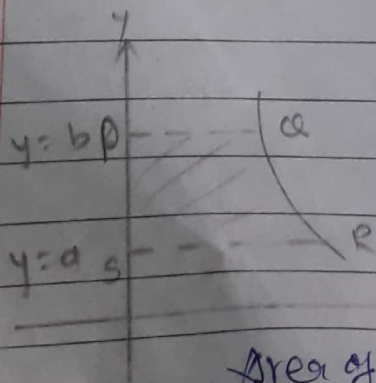 y
y=b P Q
y=a S R
Area of